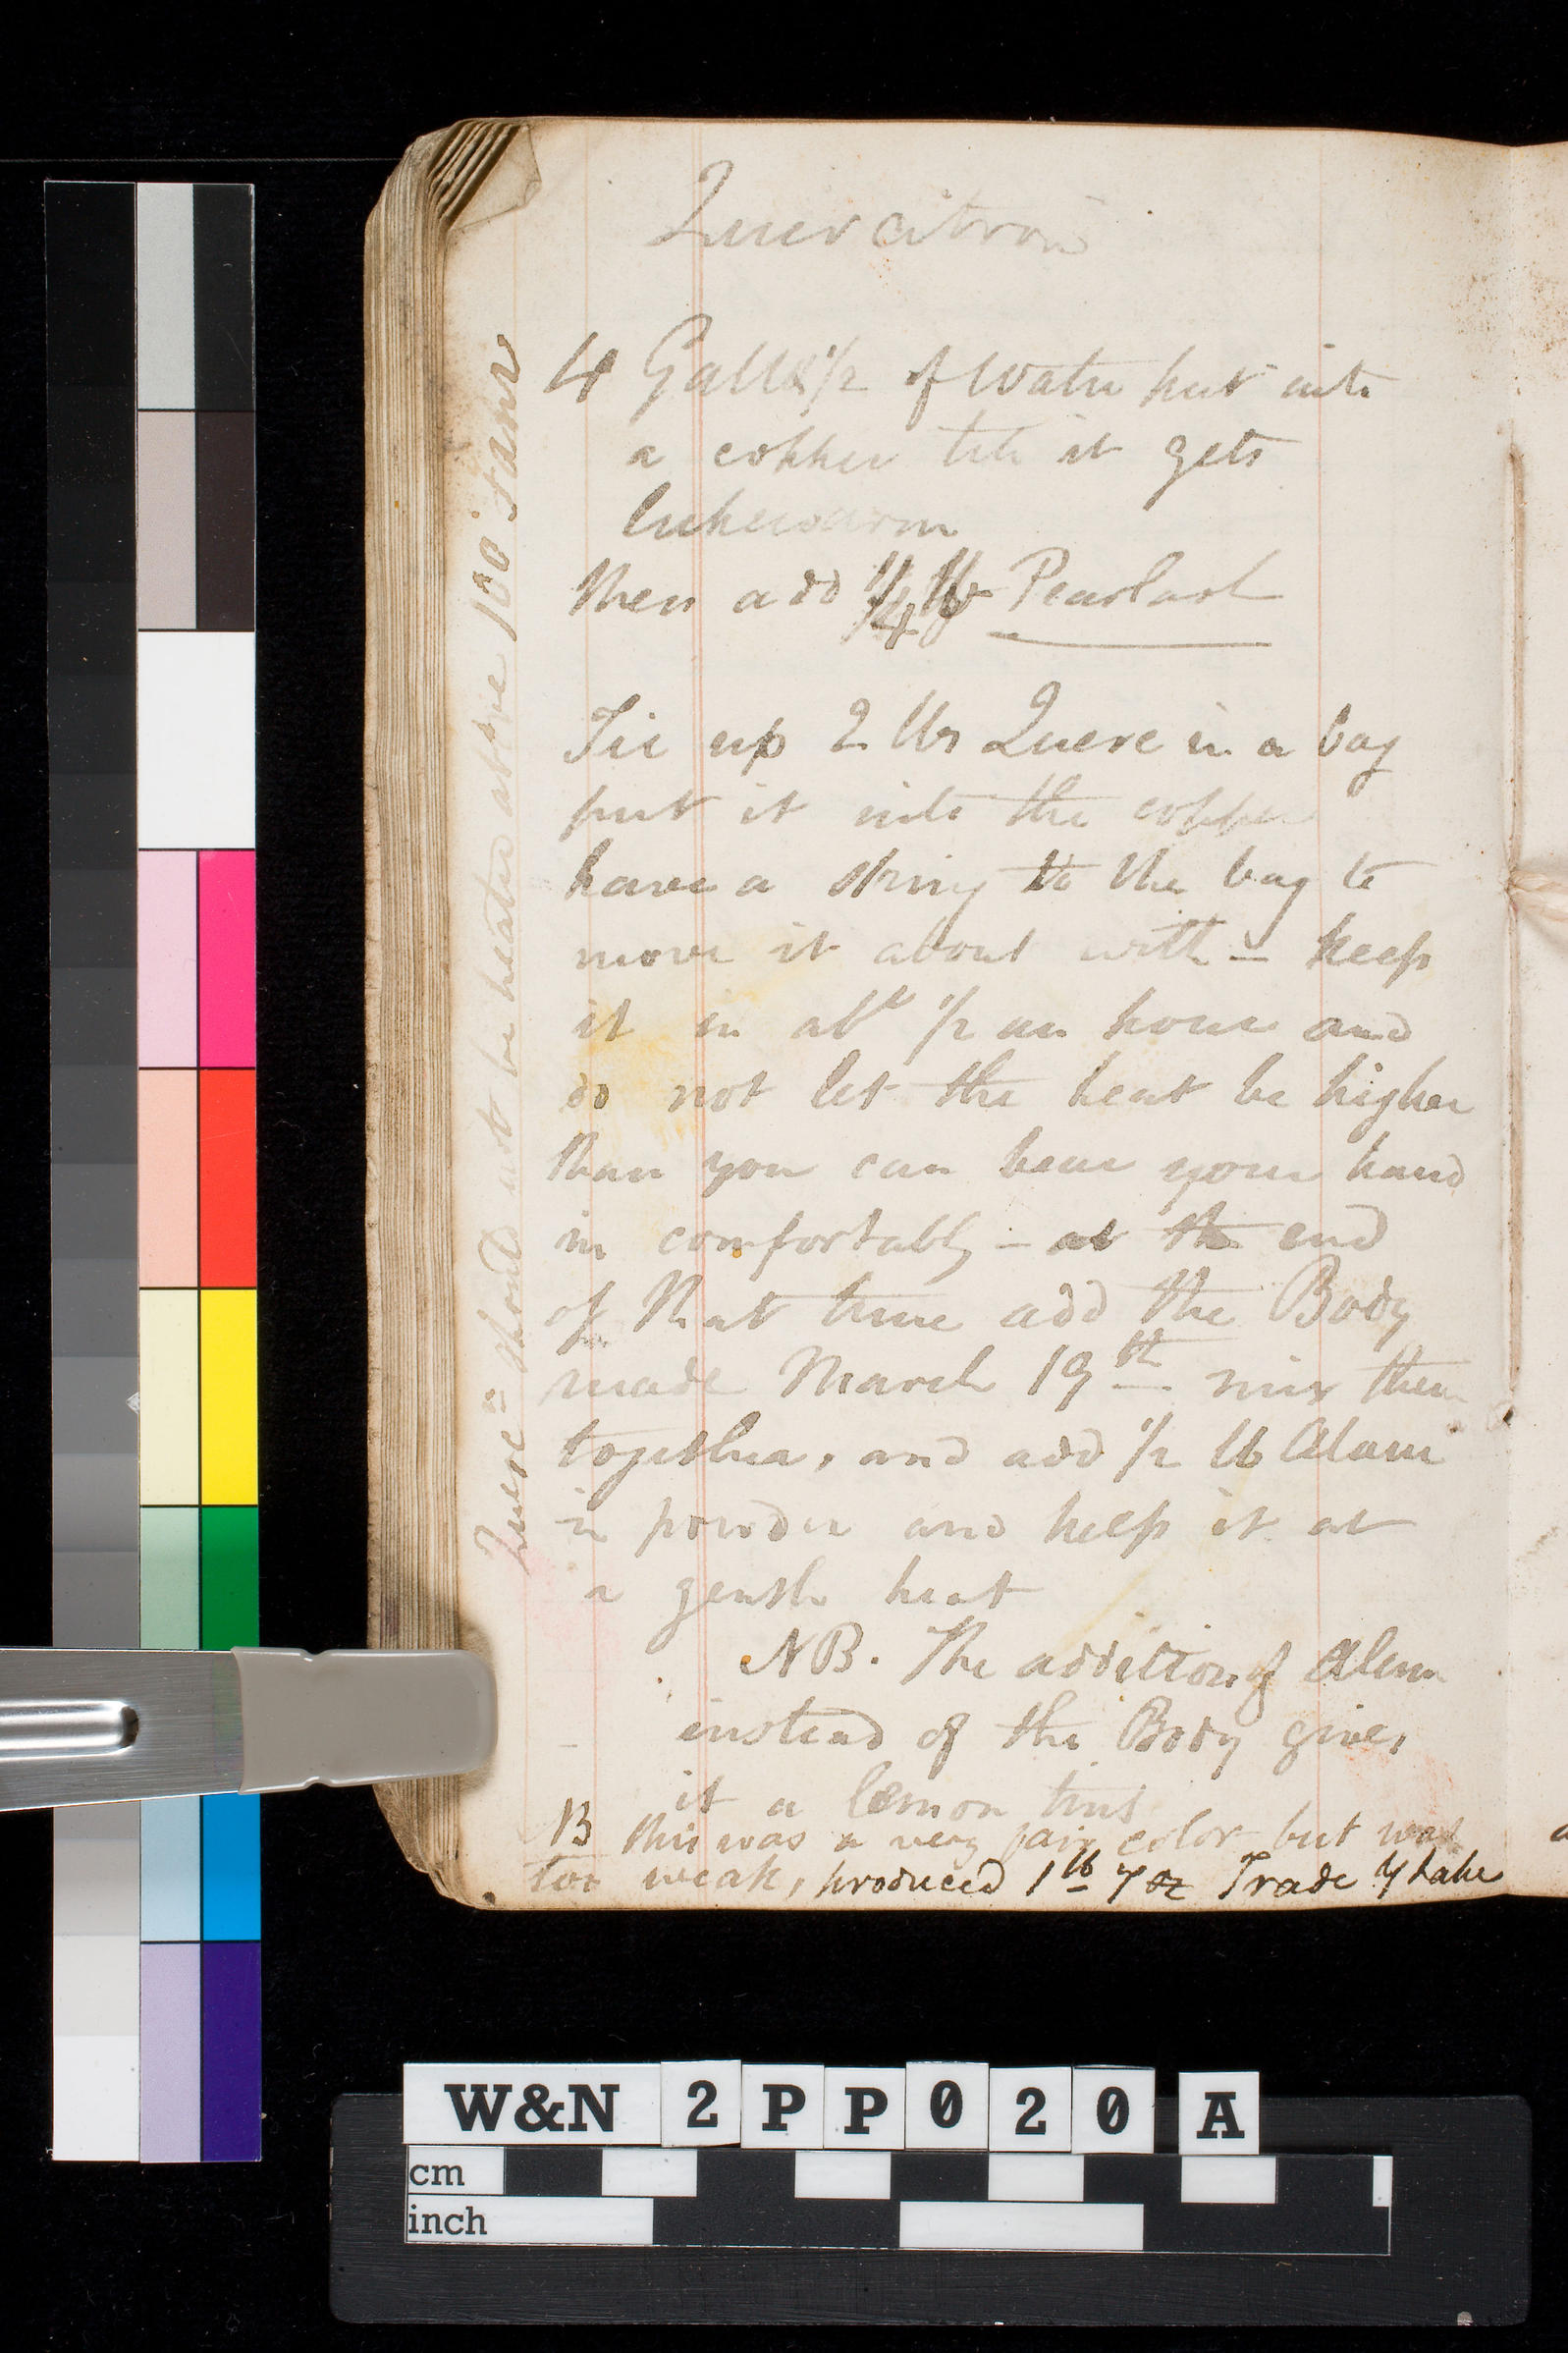 Quercitron
4 Galls 1/2 of Water put into
a copper till it gets
lukewarm
then add 1/4 lb Pearlash
Tie up 2 lbs Querc in a bag
put it into the copper
have a string to the bag to
move it about with — keep
it in abt 1/2 an hour and
do not let the heat be higher
than you can bear your hand
in comfortably — at the end
of that time add the Body
made March 19th mix them
together, and add 1/2 lb Alum
in powder and keep it at
a gentle heat
NB. The addition of Alum
instead of the Body gives
it a lemon tint
NB this was a very fair color but was
too weak, produced 1 lb 7 oz Trade Y Lake
Quercn should not be heated above 100 Fahr
W&N 2PP020 A
cm
inch